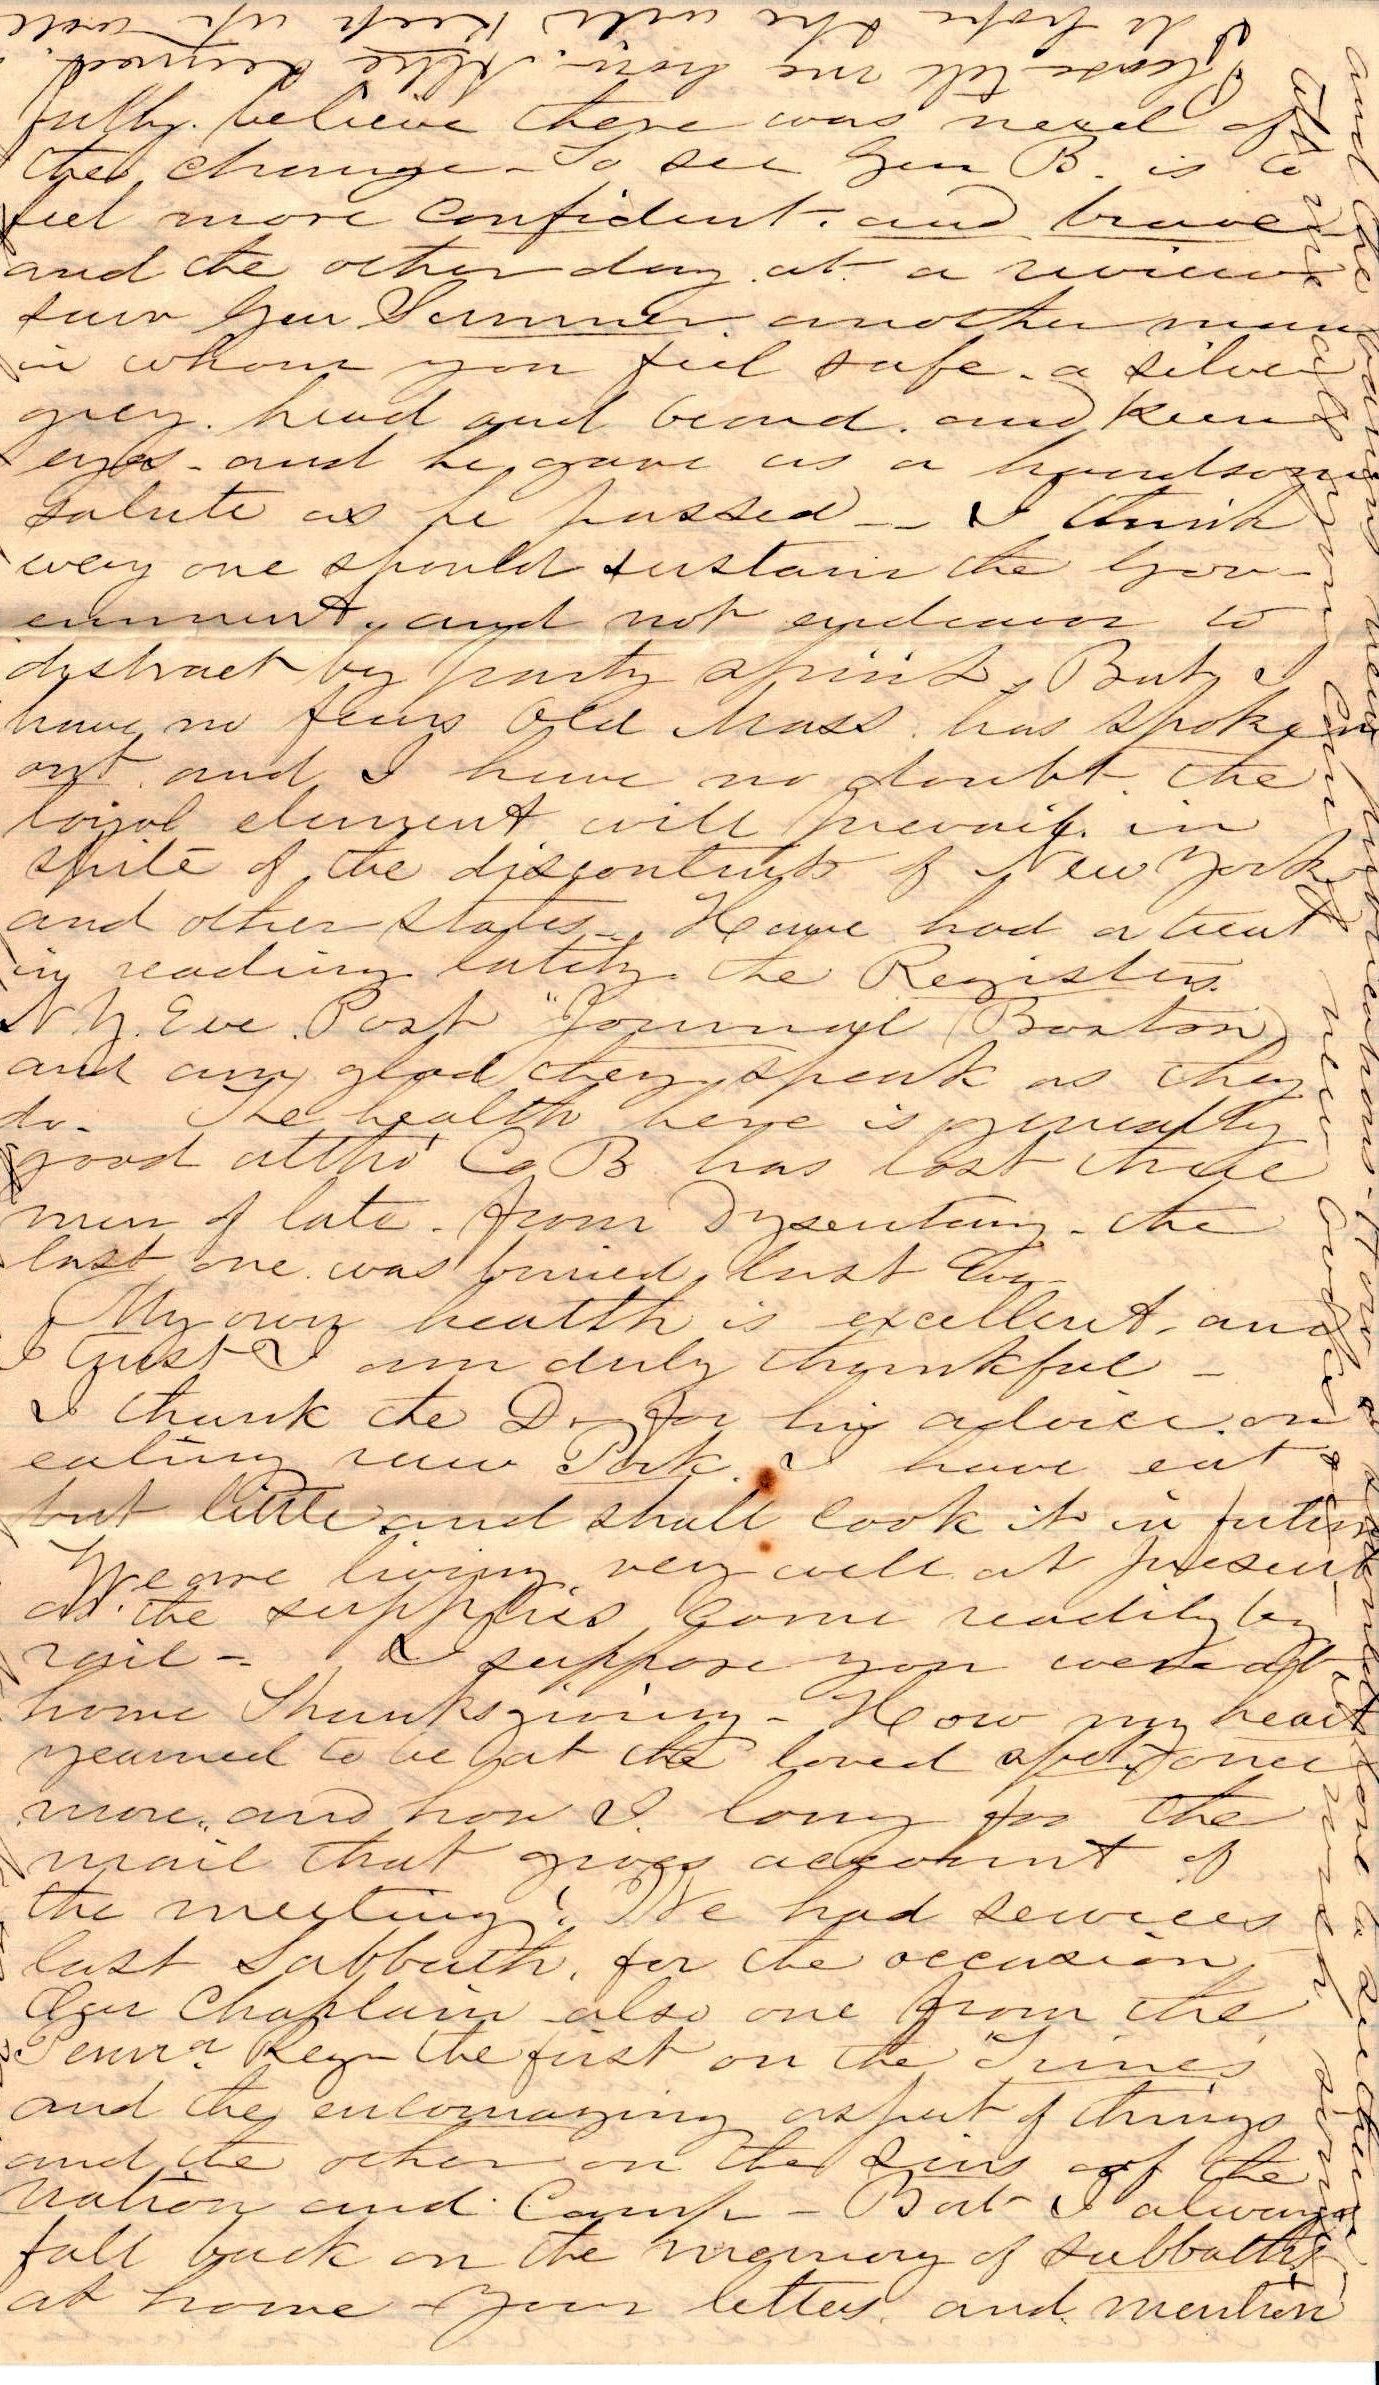 I do hope she will keep up well
Please tell me how Allie
fully believe there was need of
the change - To see Gen B. is to
feel more confident. and brave
and the other day at a review
saw Gen Sumner another man
in whom you feel safe - a silver
grey head and beard. and keen
eyes - and he gave us a handsome
salute as he passed -- I think
every one should sustain the Gov-
ernment, and not endeavor to
distract by party spirit. But I
have no fears Old Mass. has spoken
out and I have no doubt the
loyal element will prevail in
spite of the discontents of New York
and other states - Have had a treat
in reading lately the Registers.
N Y. Eve. Post "Journal (Boston)
and am glad they speak as they
do. The health here is generally
good altho' Co B has lost three
men of late - from Dysentery - the
last one was buried last Eve
My own health is excellent, and
I trust I am duly thankful -
I thank the Dr for his advice on
eating raw Pork. I have eat
but little and shall cook it in future
We are living very well at present
as the supplies come readily by
rail - I suppose you were at
home Thanksgiving - How my heart
yearned to be at the loved spot once
more, and how I long for the
mail that gives account of
the meeting! We had services
last Sabbath, for the occasion
Our Chaplain also one from the
Penna. Reg - the first on the "Times
and the encouraging aspect of things
and the other on the Sins of the
Nation and Camp - But I always
fall back on the memory of sabbaths
at home - Your letters. and mention
and the various new publications -
Tell me all your Com new